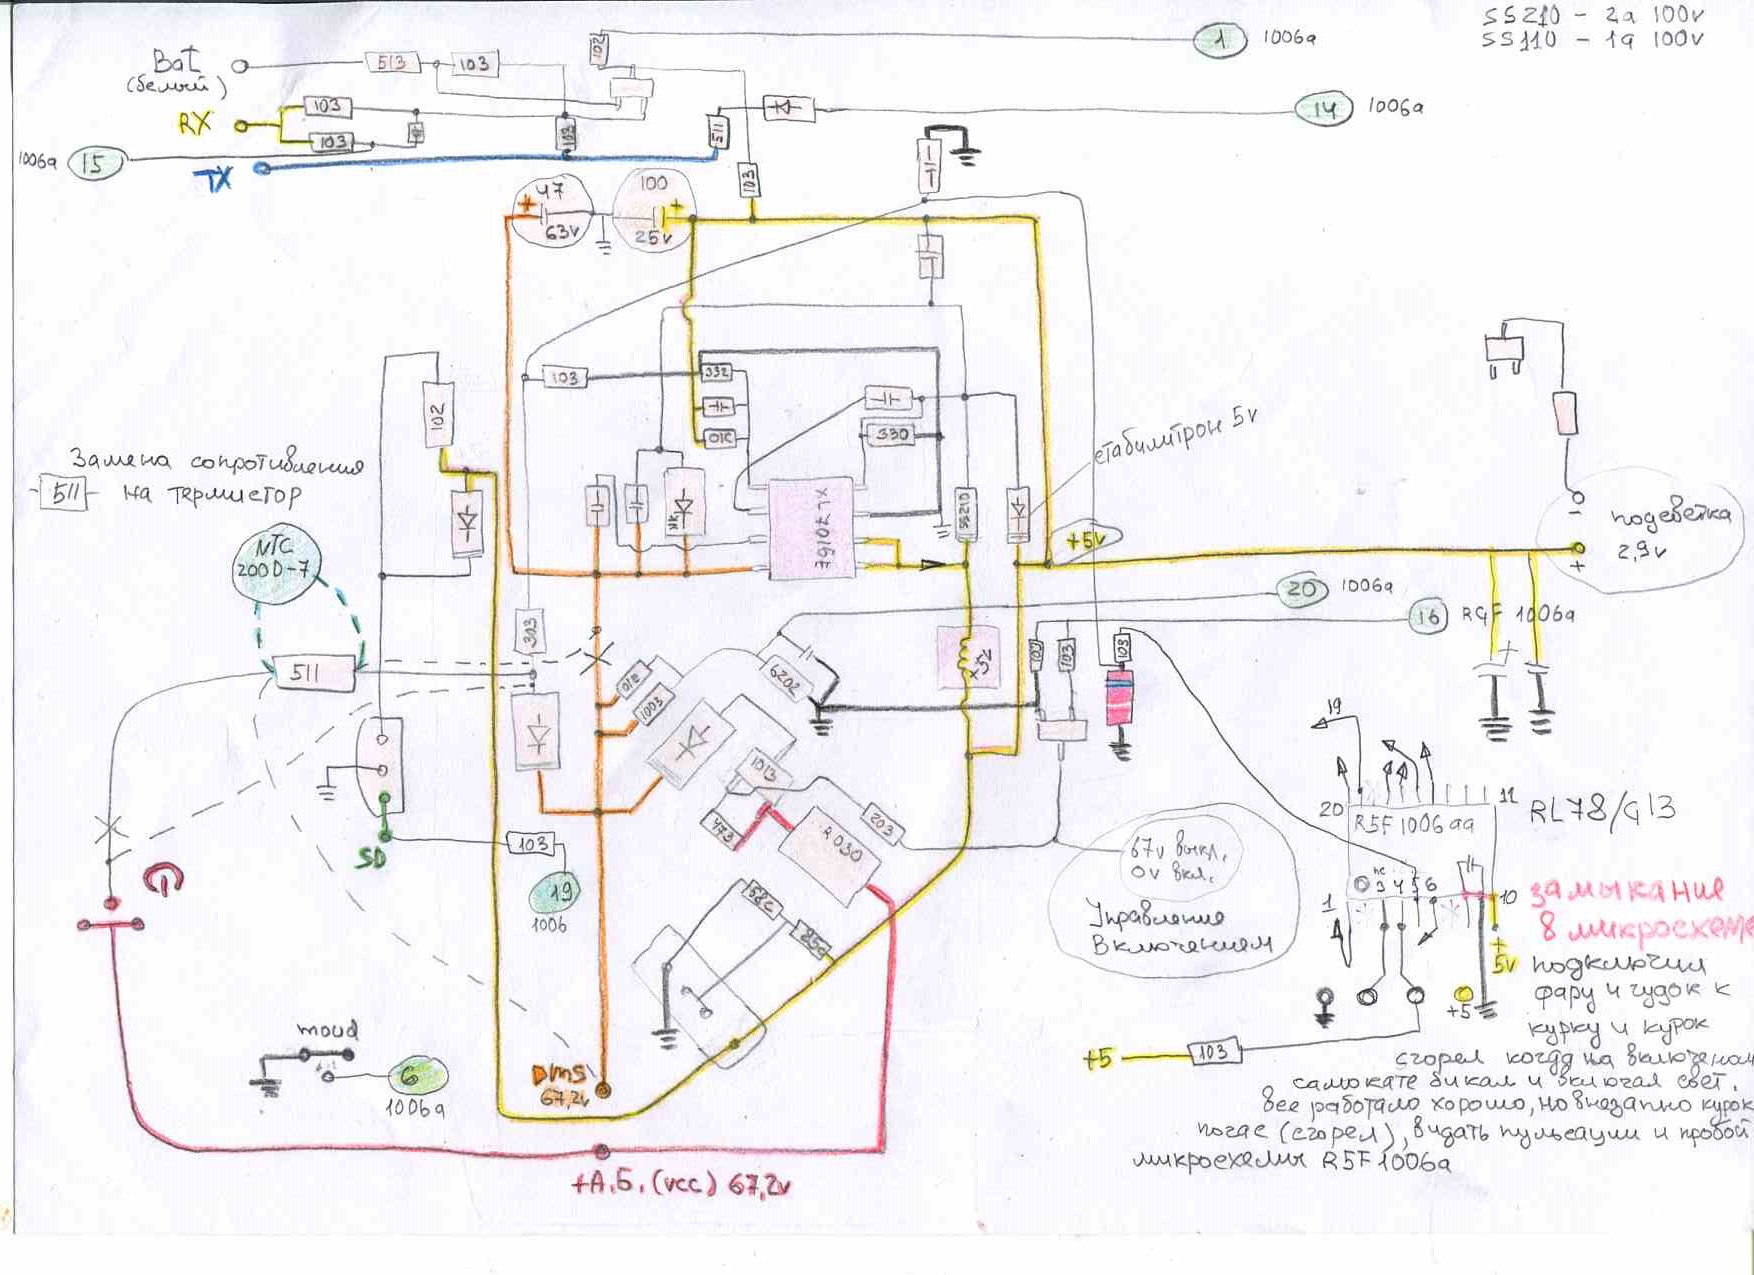 SS210 - 2a 100v
SS110 - 1a 100v
1
1006a
Bat
(белый)
513
103
102
14
1006a
RX
103
103
103
511
1006a
15
TX
103
47
+
63v
100
+
25v
103
332
01C
330
102
стабилитрон 5v
Замена сопротивления
511
на термистор
NTC
200D-7
XL7016E
SS210
+5v
подсветка
2,9v
-
+
20
1006a
16
R5F 1006a
303
511
01C
1003
6202
103
103
103
1013
203
473
R030
SD
103
19
1006
67v выкл.
0v вкл.
Управление
Включением
58C
85d
19
20
11
R5F 1006aa
RL78/G13
нс
3 4 5 6
1
10
замыкание
в микросхеме
+
5v
+5
подключил
фару и гудок к
курку и курок
сгорел когда на включеном
самокате бикал и включал свет.
все работало хорошо, но внезапно курок
погас (сгорел), видать пульсации и пробой
микросхемы R5F1006a
+5
103
moud
6
1006a
DMS
67,2v
+А.Б. (vcc) 67,2v